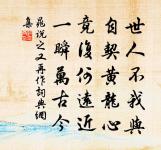 世人不我與
自契黃龍心
竟復何遠近
一瞬萬古今
晁說之又再作詞典網
集